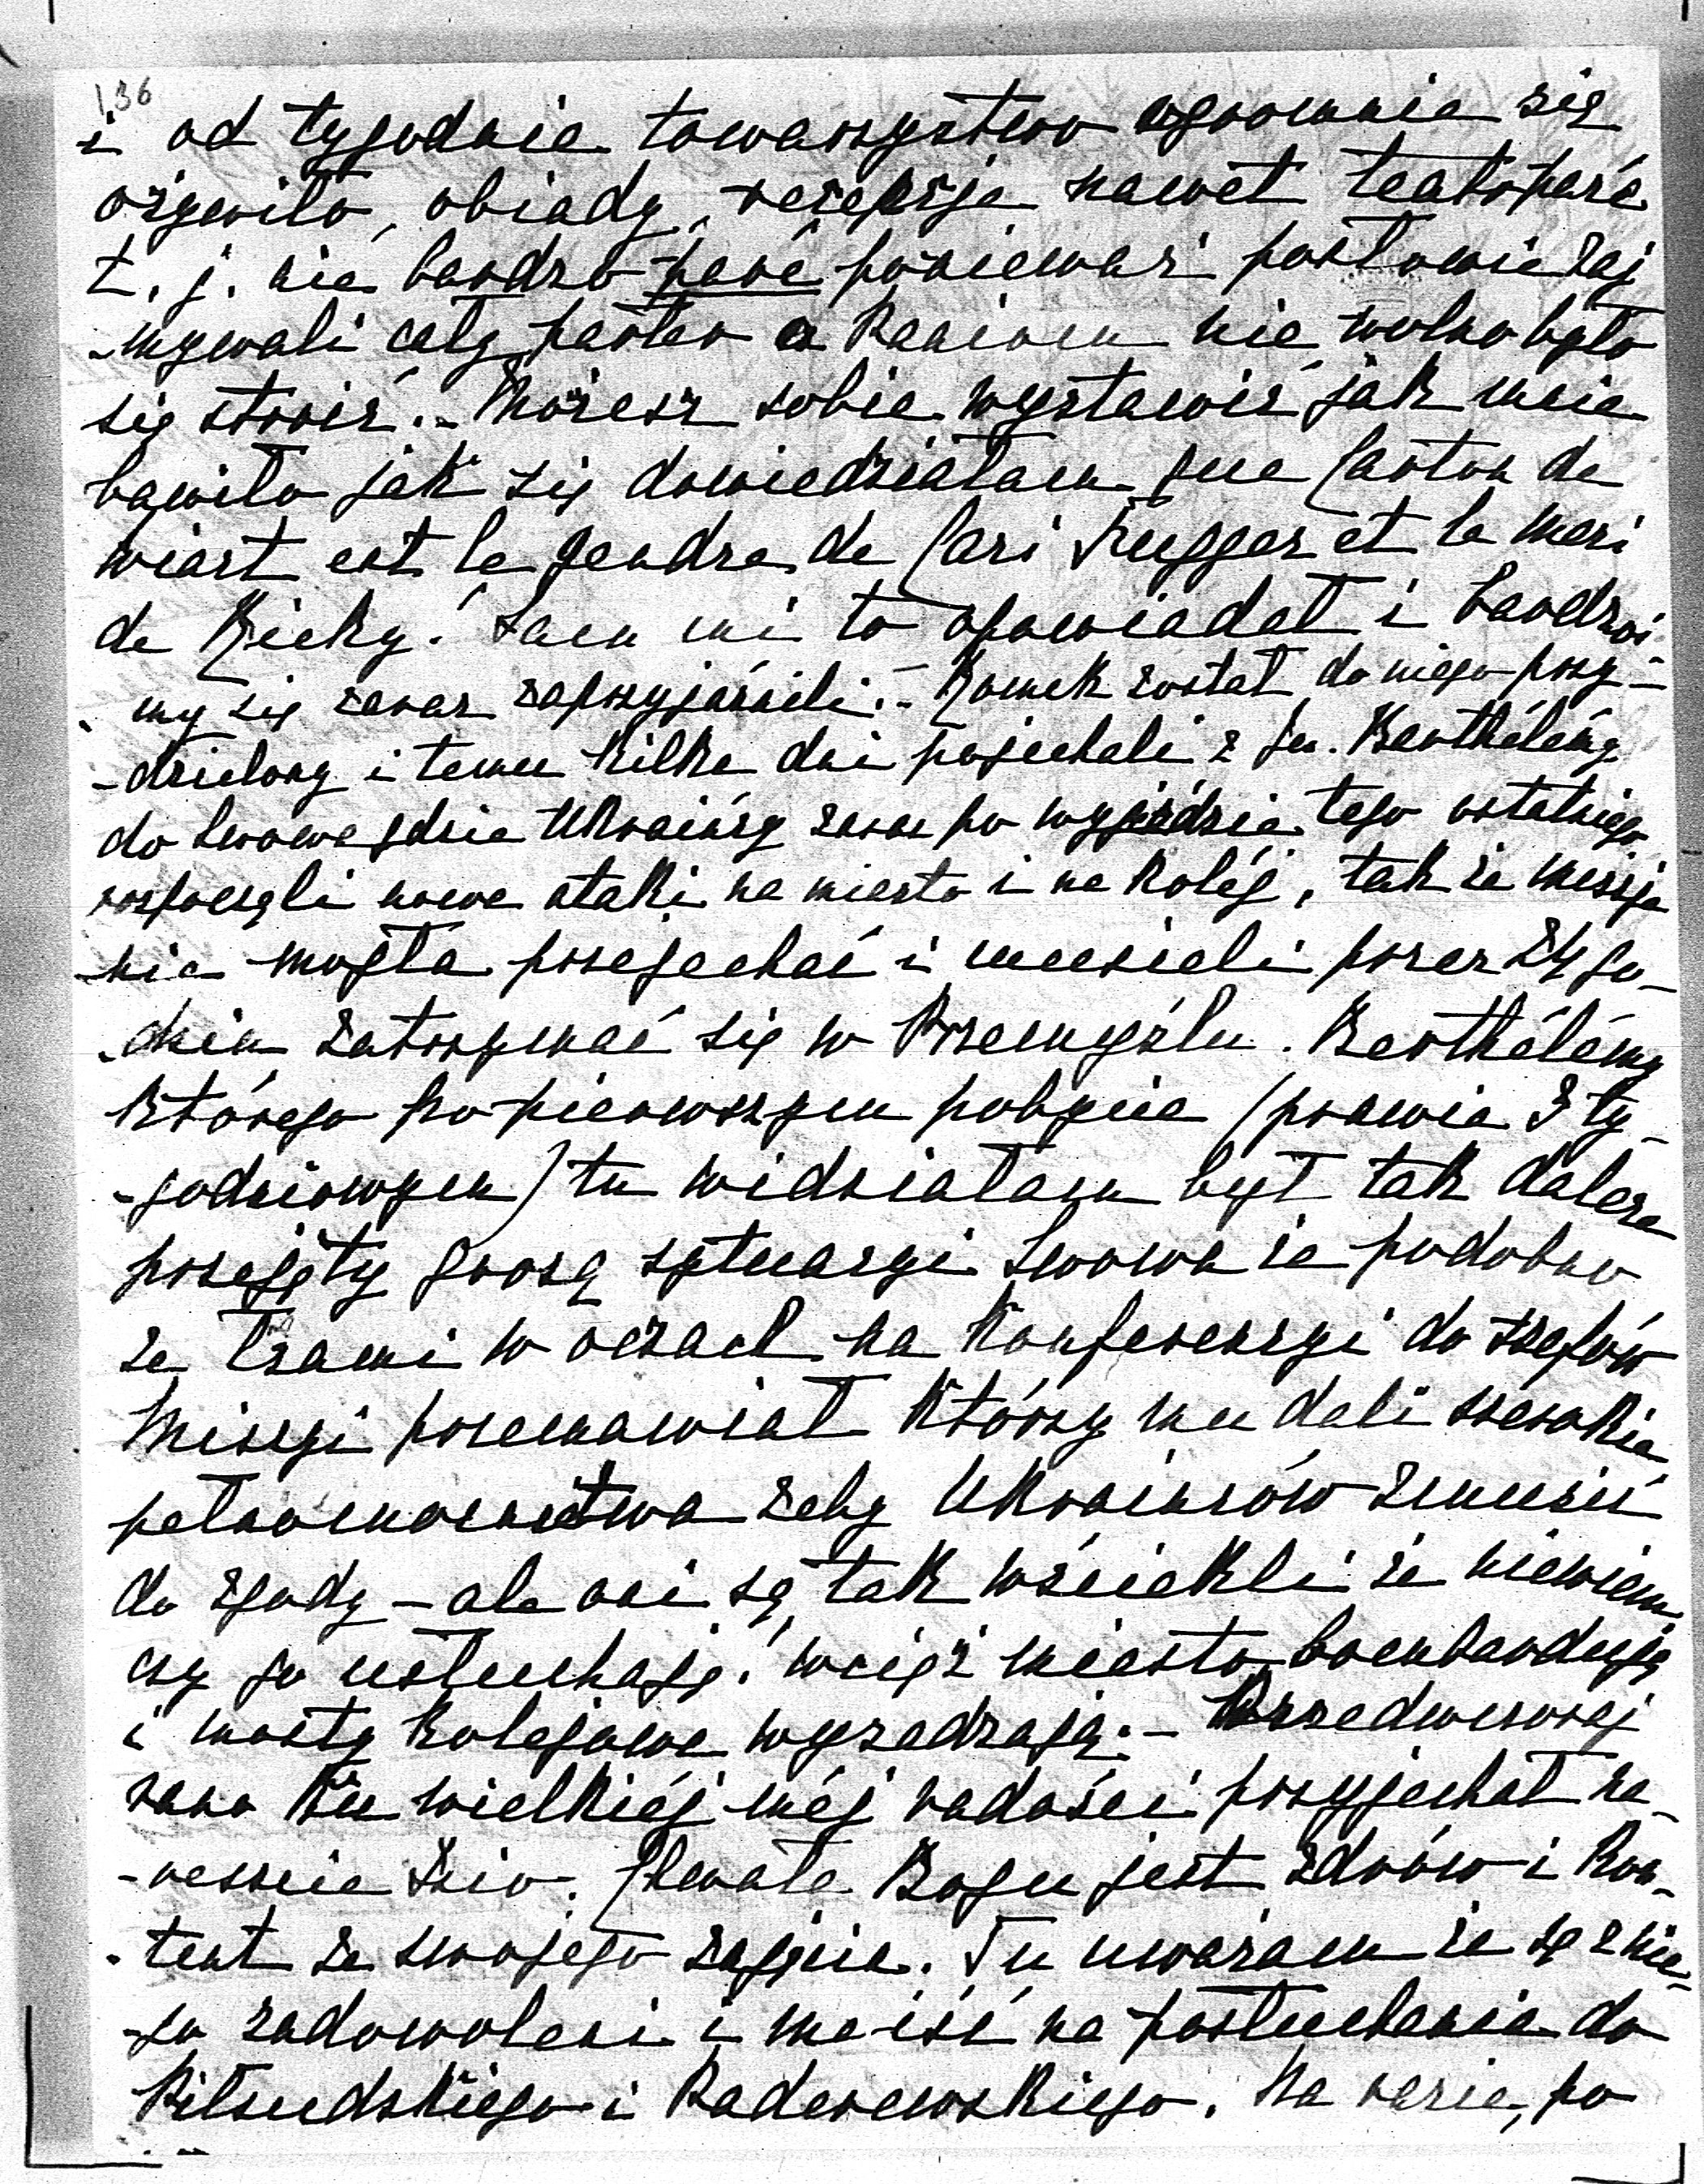 136
i od tygodnia towarzystwo ogromnie się
ożywiło, obiady, recepcje nawet teatr paré
t. j. nie bardzo paré ponieważ posłowie zaj
-mywali cały parter a Paniom nie wolno było
się stroić. - Możesz sobie wystawić jak mnie
bawiło jak się dowiedziałam que Carton de
Wiart est le gendre de Cari Fugger et le mari
de Ricky! Sam mi to opowiadał i bardzoi
my się zaraz zaprzyjaźnili. - Romek został do niego przy-
-dzielony i temu kilka dni pojechali z Jen. Berthélémy
do Lwowa gdzie Ukraińcy zaraz po wyjeździe tego ostatniego
rozpoczęli nowe ataki na miasto i na koléj, tak że missja
nie mogła przejechać i musieli przez tygo-
-dnia zatrzymać się w Przemyślu. Berthélémy
którego po pierwszym pobycie (prawie 3 ty-
-godniowym) tu widziałam był tak dalece
przejęty grozą sytuacyi Lwowa że podobno
ze łzami w oczach na Konferencyi do szefów
Misyi przemawiał którzy mu dali szerokie
pełnomocnictwa żeby Ukraińców zmusić
do zgody - ale oni są tak wściekli że niewiem
czy go usłuchają! wciąż miasto bombardują
i mosty kolejowe wysadzają. - Przedwczoraj
rano ku wielkiéj méj radości przyjechał na-
-reszcie Dzio. Chwała Bogu jest zdrów i kon-
-tent ze swojego zajęcia. Tu uważam że są z nie-
-go zadowoleni i ma iść na posłuchanie do
Piłsudskiego i Paderewskiego. Na razie, po